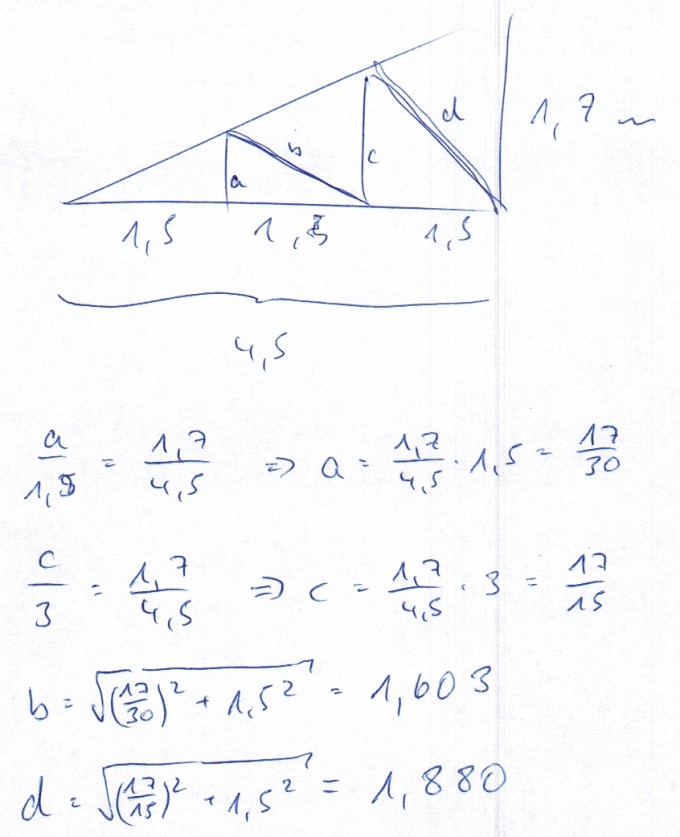 a b c d 1,7 m
1,5 1,5 1,5
4,5
a/1,5 = 1,7/4,5 ⇒ a = 1,7/4,5 · 1,5 = 17/30
c/3 = 1,7/4,5 ⇒ c = 1,7/4,5 · 3 = 17/15
b = √((17/30)² + 1,5²) = 1,603
d = √((17/15)² + 1,5²) = 1,880